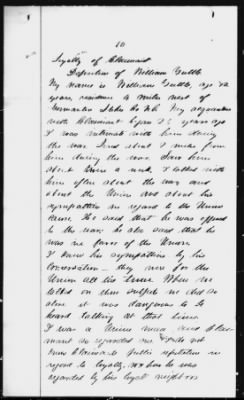 10
Loyalty of Claimant
Deposition of William Tuttle
My name is William Tuttle, age 52
years, residence 2 miles west of
Germanton Stokes Co N.C. My acquaintance
with Claimant began 25 years ago
I was intimate with him during
the war. Lived about 2 miles from
him during the war. Saw him
about twice a week. I talked with
him often about the war and
about the Union and about his
sympathies in regard to the Union
cause. He said that he was opposed
to the war he also said that he
was in favor of the Union.
I knew his sympathies by his
conversation - they were for the
Union all the time. When we
talked on this subject we did so
alone it was dangerous to be
heard talking at that time.
I was a Union man and Claimant
so regarded me. I do not
know Claimants public reputation in
regard to loyalty, nor how he was
regarded by his loyal neighbors